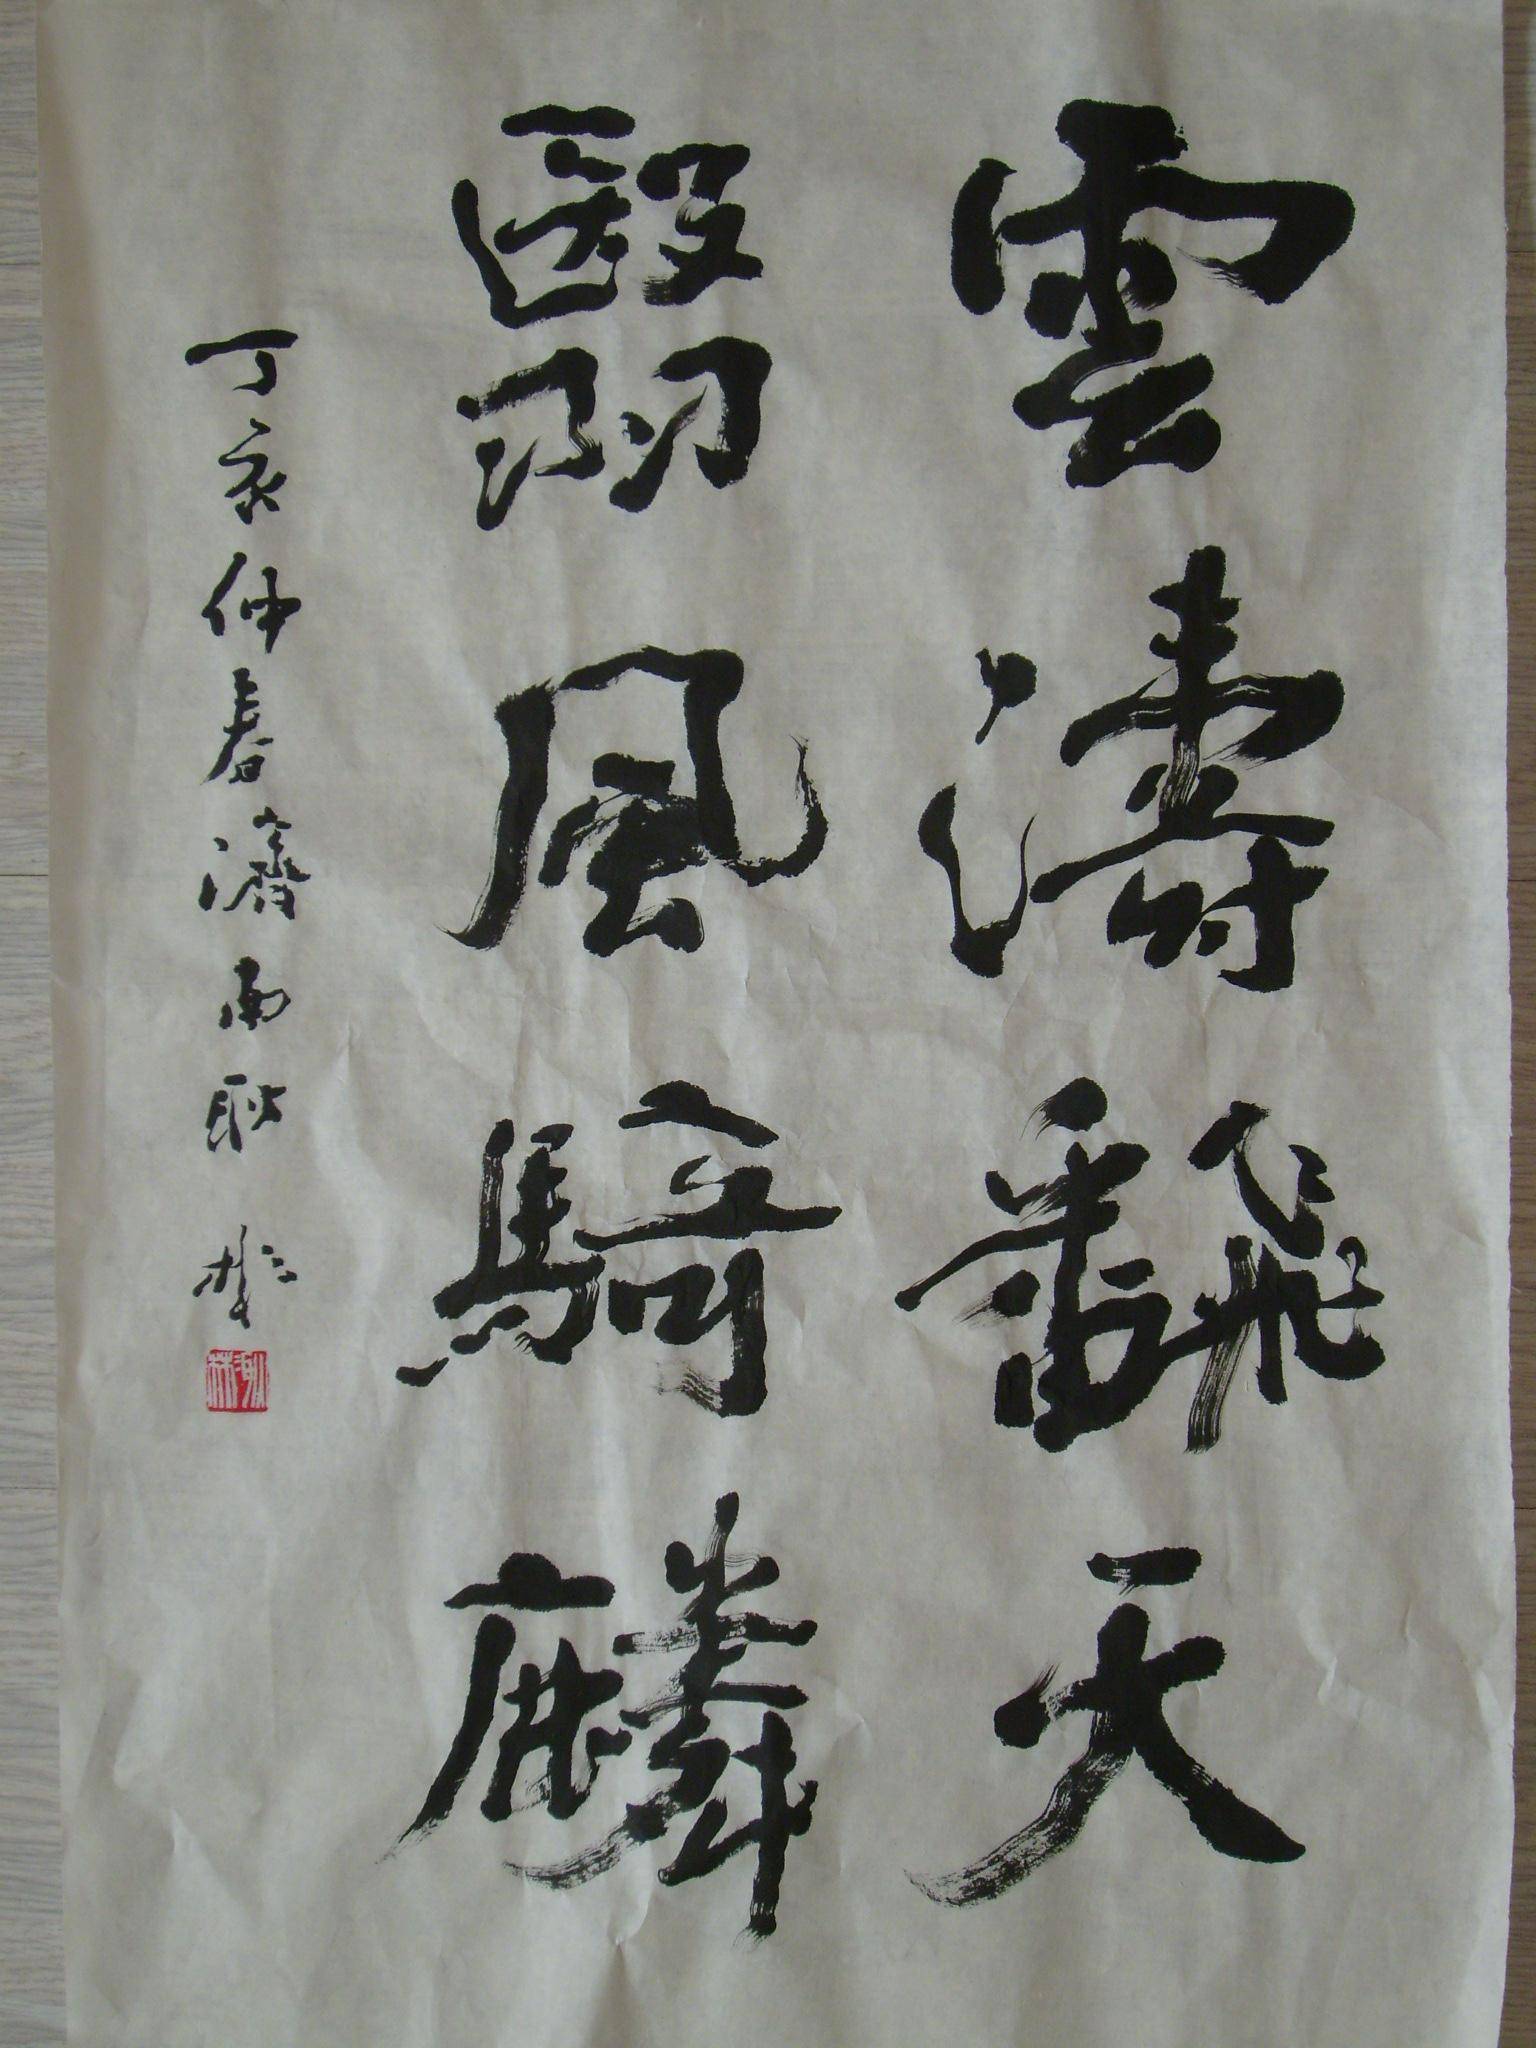 雲濤飜天
翳風騎麟
丁亥仲春濟南耿彬